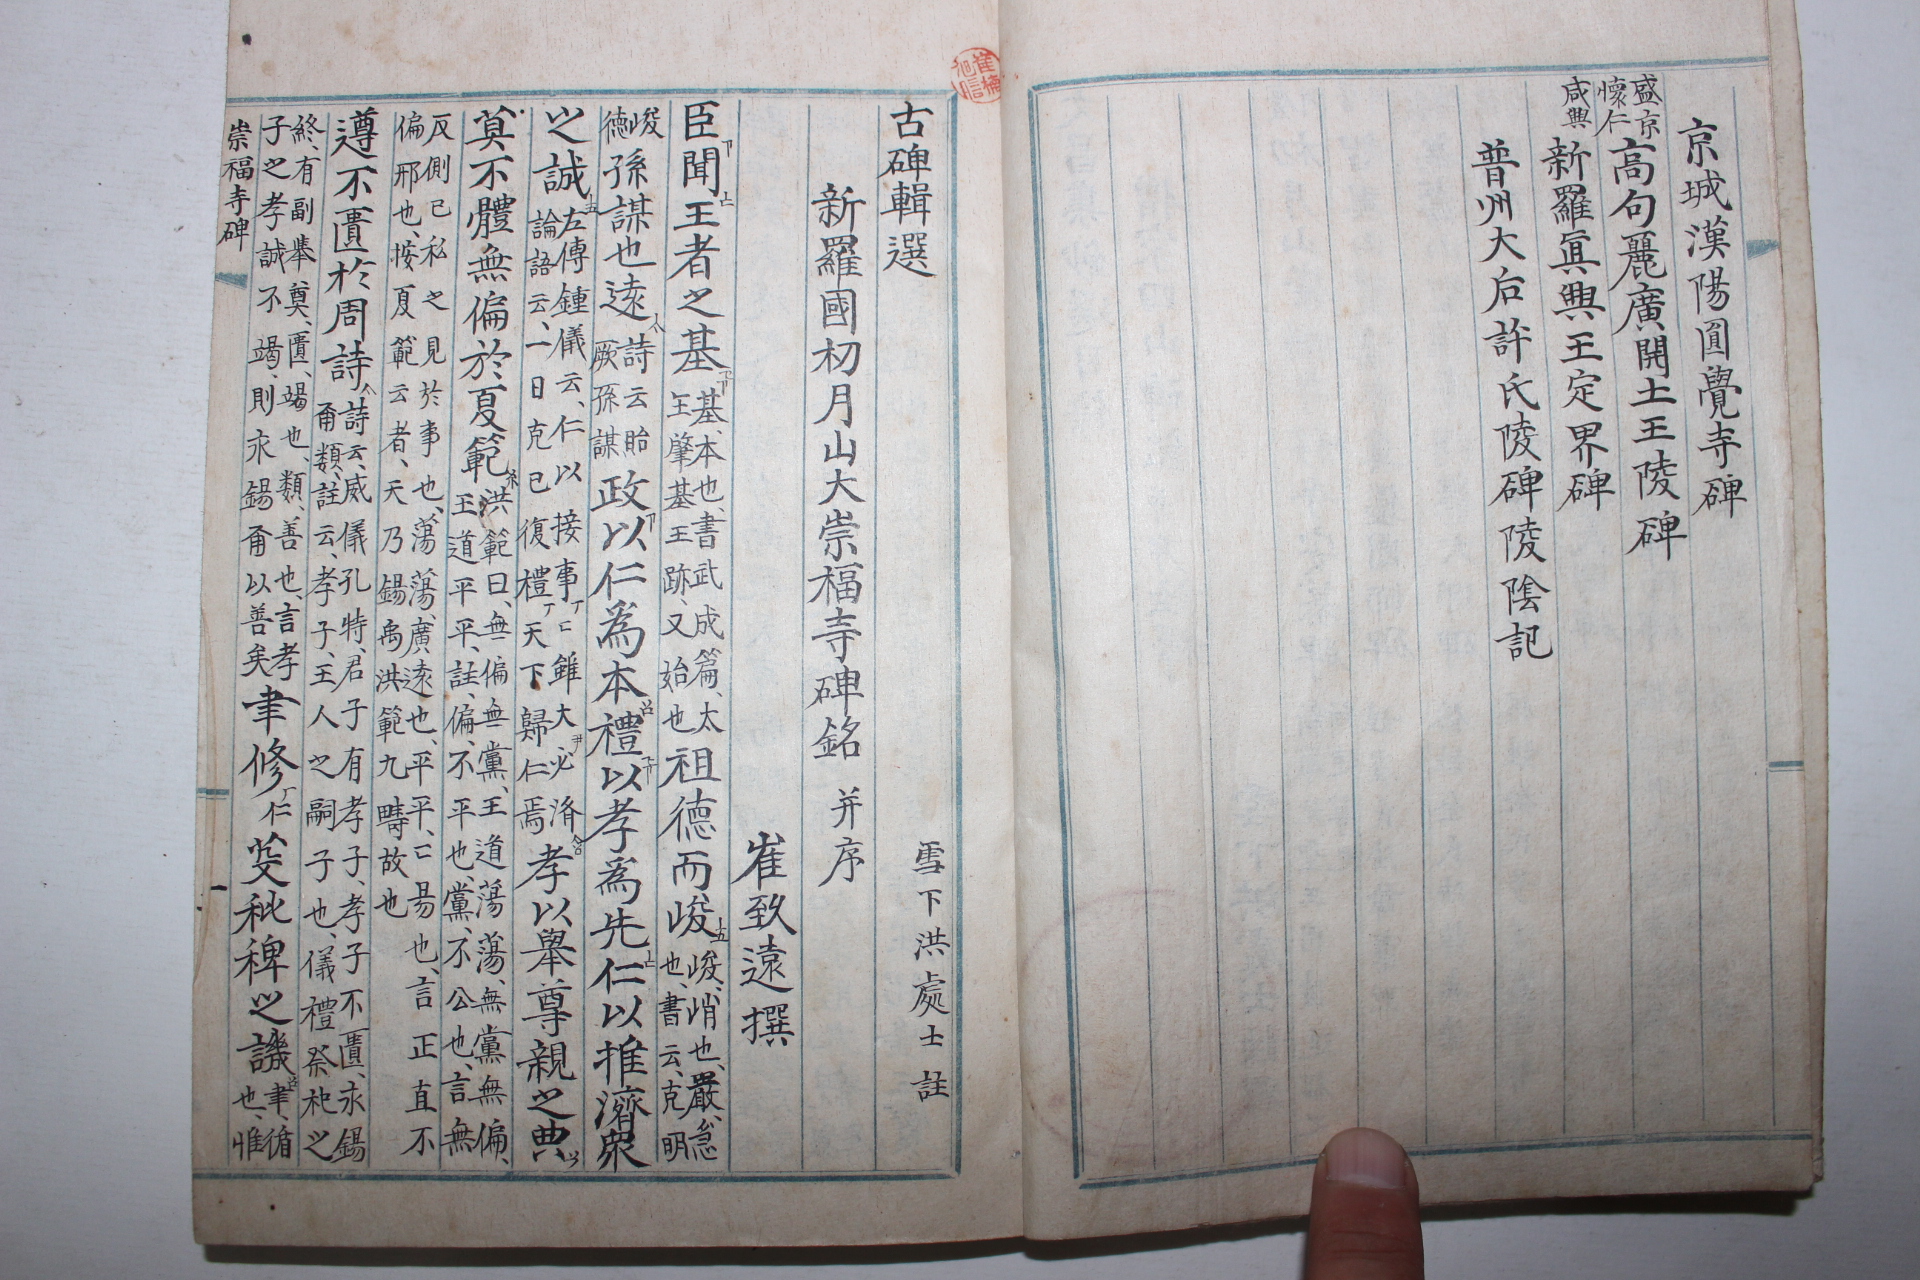 京城漢陽圓覺寺碑
盛京
懷仁
高句麗廣開土王陵碑
咸興
新羅眞興王定界碑
普州大后許氏陵碑陵陰記
古碑輯選 雪下洪處士註
新羅國初月山大崇福寺碑銘 并序
崔致遠撰
臣聞王者之基 基、本也、書武成篇、太王肇基王跡、又始也 祖德而峻 峻、峭也、嚴、急也、書云、克明
峻德 孫謀也遠 詩云貽厥孫謀 政以仁爲本禮以孝爲先仁以推濟衆
之誠 左傳鍾儀云、仁以接事雖大必済 論語云、一日克己復禮天下歸仁焉 孝以擧尊親之典
莫不體無偏於夏範 洪範曰、無偏無黨、王道蕩蕩、無黨無偏、王道平平、註、偏、不平也、黨、不公也、言無
反側已私之見於事也、蕩蕩、廣遠也、平平、易也、言正直不偏邪也、按夏範云者、天乃錫禹洪範九疇故也
遵不匱於周詩 詩云、威儀孔特、君子有孝子、孝子不匱、永錫甬類、註云、孝子、主人之嗣子也、儀禮祭祀之
終、有副擧奠、匱、竭也、類、善也、言孝子之孝誠不竭、則永錫甬以善矣 聿修 芟秕稗之譏 聿、循也、惟
崇福寺碑